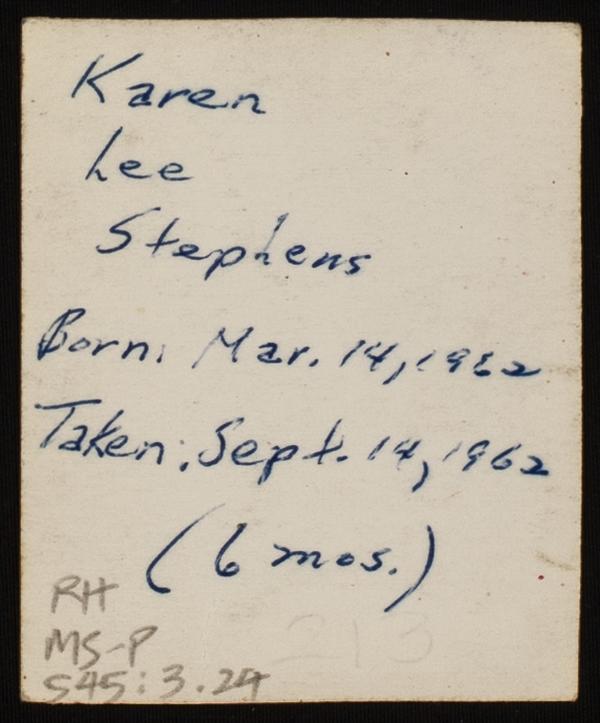 Karen
Lee
Stephens
Born: Mar. 14, 1962
Taken: Sept. 14, 1962
(6 mos.)
RH
MS-P
545:3.24
213